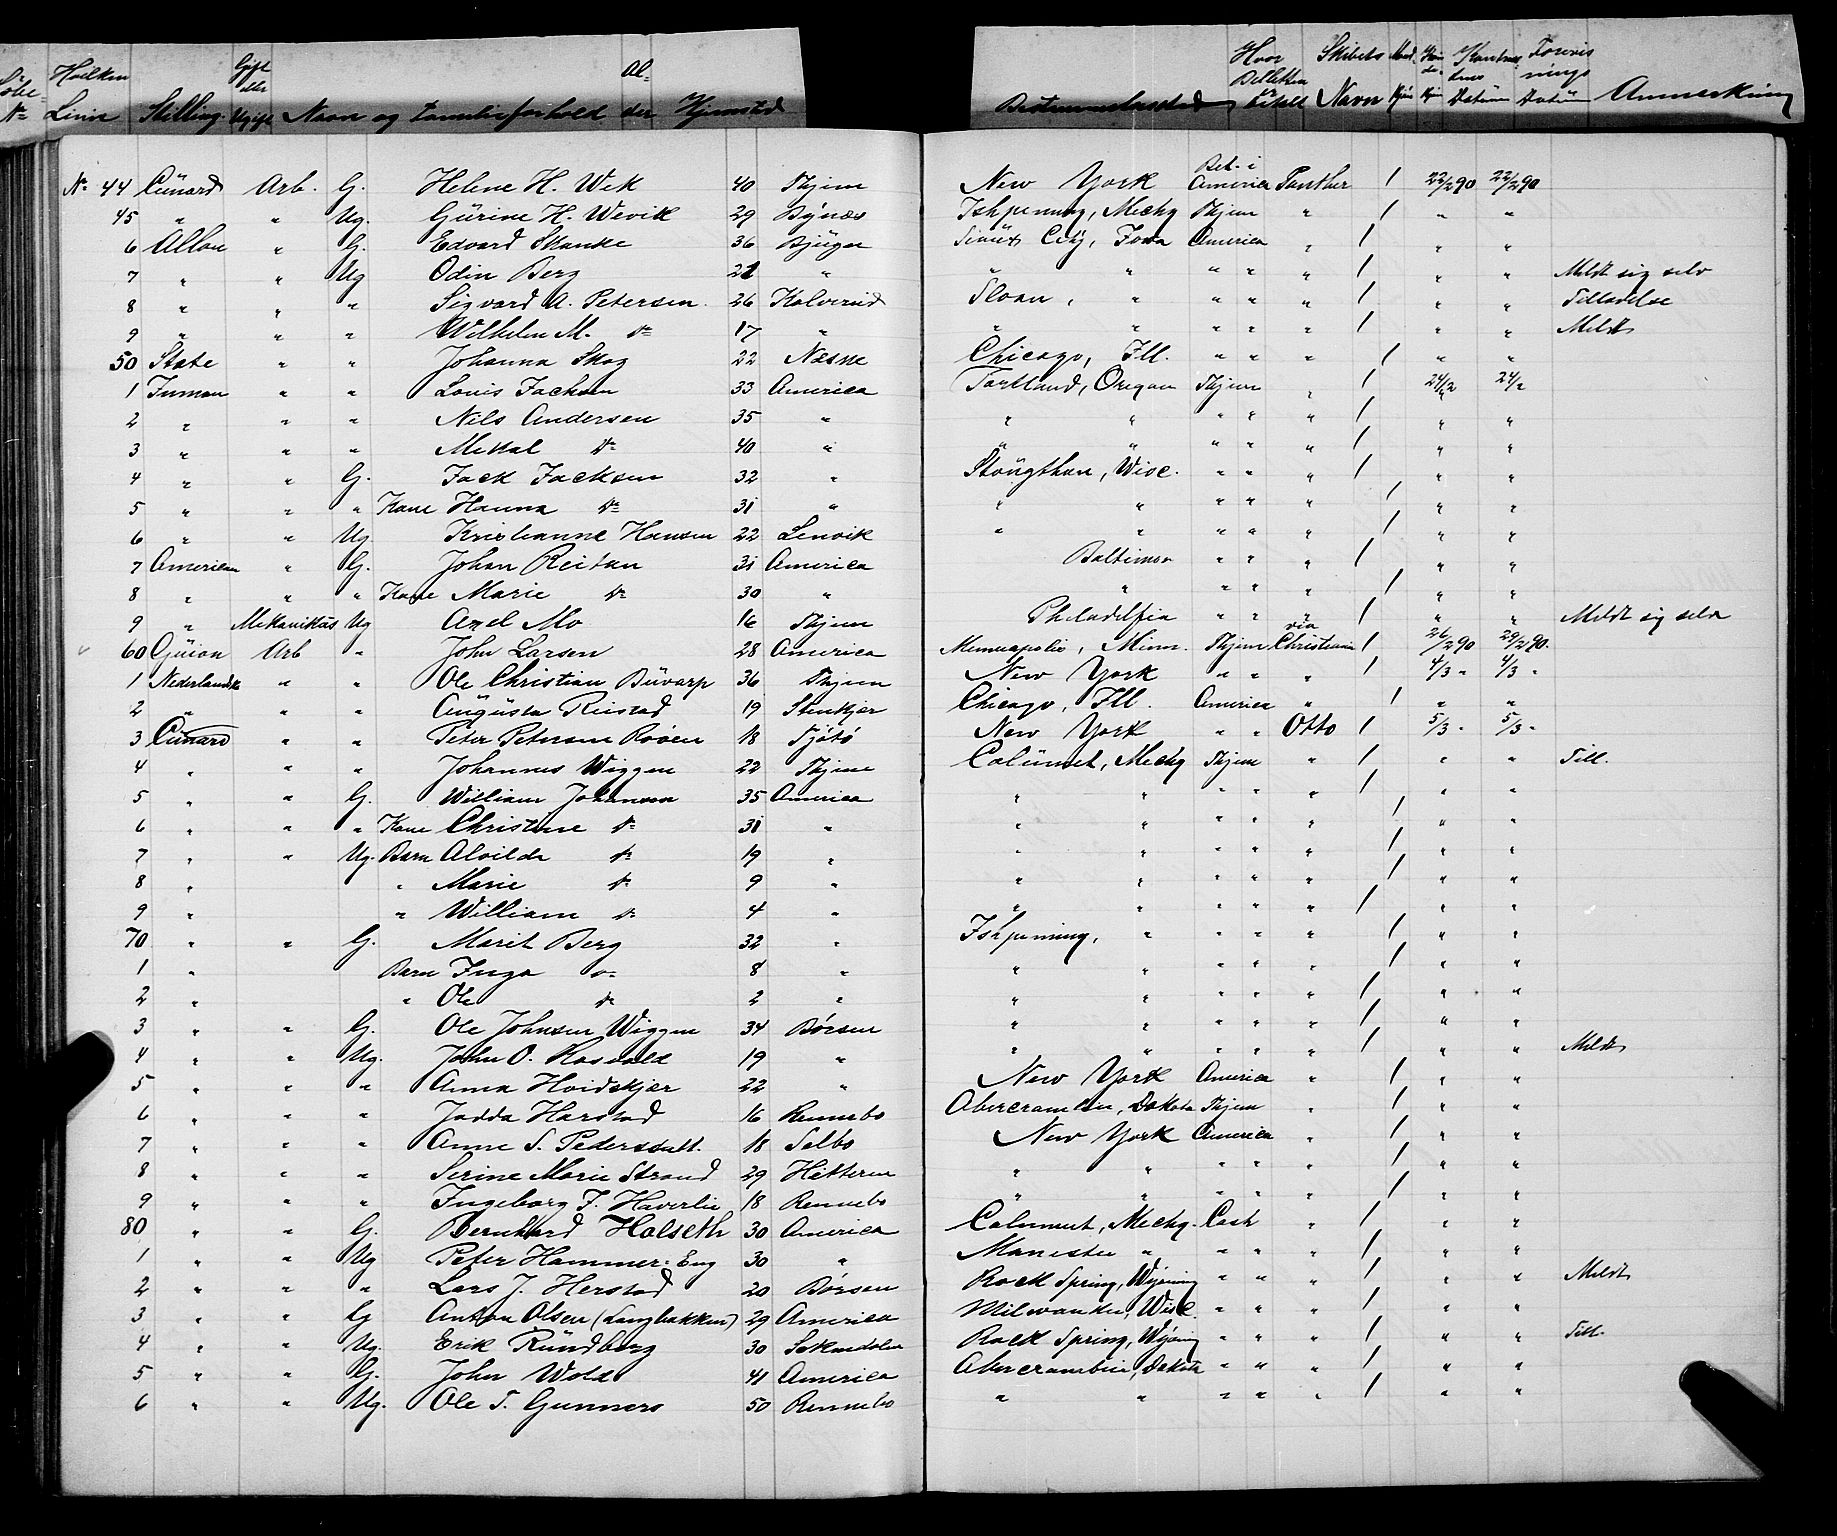 Löbe- Hvilken Gift Al- Hvor Skibets Mand Kvin Kontrac Forevis
No Linie Stilling eller Ugift Navn og Familieforhold der Hjemsted Bestemmelsessted Billetten er købt Navn Kjön Kjön Datum Datum Anmerkning
No 44 Cunard Arb. G. Helene H. Wek 40 Thjem New York Bet. i America Panther / 22/2 90 22/2 90
45 " " Ug. Gurine H. Wevik 29 Bynæs Ishpeming, Mechg Thjem " / " "
6 Allan " G. Edvard Skanke 36 Bjugn Sioux City, Iowa America " / " "
7 " " Ug Odin Berg 21 " " " " " " / " " Meldt sig selv
8 " " " Sigvard A. Petersen 26 Halvernd Sloan, " " " " / " " Tilladelse
9 " " " Wilhelm M. do 17 " " " " " " / " " Meldt
50 State " " Johanna Skog 22 Næsne Chicago, Ill. " " " / " "
1 Inman " " Louis Jacksen 33 America Portland, Oregon Thjem " / 24/2 24/2
2 " " " Nils Andersen 35 " " " " " " / " "
3 " " " Mikal do 40 " " " " " " / " "
4 " " G. Jack Jacksen 32 " Stougthon, Wisc. " " " / " "
5 " " " Kone Hanna do 31 " " " " " " / " "
6 " " Ug. Kristianne Hansen 22 Lenvik " " " " " / " "
7 American " G. Johan Reitan 31 America Baltimor " " " / " "
8 " " " Kone Marie do 30 " " " " " / " "
9 " Mekanikus Ug Axel Mo 16 Thjem Philadelfia " " " / " " Meldt sig selv
60 Guion Arb " John Larsen 28 America Minneapolis, Minn. Thjem via Christiania / 26/2 90 29/2 90.
1 Nederlandsk " " Ole Christian Buvarp 36 Thjem New York " " " / 4/3 " 4/3 "
2 " " " Augusta Reistad 19 Stenkjer Chicago, Ill. America " / " "
3 Cunard " " Peter Petersen Röven 18 Tjötö New York " " Otto / 5/3 " 5/3 "
4 " " " Johannes Wiggen 22 Thjem Calumet, Mechg Thjem " / " " Till.
5 " " G. William Johansen 35 America " " " " " / " "
6 " " " Kone Christine do 31 " " " " " " / " "
7 " " Ug. Barn Alvilde do 19 " " " " " " / " "
8 " " Marie do 9 " " " " " " / " "
9 " " William do 4 " " " " " " / " "
70 " " G. Marit Berg 32 " Ishpeming, " " " " / " "
1 " Barn Inga do 8 " " " " " " / " "
2 " " Ole do 2 " " " " " " / " "
3 " " G. Ole Johnsen Wiggen 34 Börsen " " " " " / " "
4 " " Ug. John O. Hasvold 19 " " " " " " / " " Meldt
5 " " " Anna Hoidskjer 22 " New York America " / " "
6 " " " Jadda Harstad 16 Rennebo Abercrambie, Dakota Thjem " / " "
7 " " " Anne S. Pedersdatt. 18 Selbo New York America " / " "
8 " " " Serine Marie Strand 29 Hitteren " " " " " / " "
9 " " " Ingeborg J. Haverlie 18 Rennebo " " " " " / " "
80 " " G. Bernhard Halseth 30 America Calumet, Mechg. Cash " / " "
1 " " Ug Peter Hammer-Eng 30 " Manistee " " " " / " "
2 " " " Lars J. Herstad 20 Börsen Rock Spring, Wyoming " " " / " " Meldt
3 " " G Anton Olsen (Langbakken) 29 America Milwaukee, Wisc. " " " / " "
4 " " Ug. Erik Rundberg 30 Soknedalen Rock Spring, Wyoming " " " / " " Till.
5 " " G. John Wold 41 America Abercrambie, Dakota " " " / " "
6 " " Ug. Ole T. Gunners 50 Rennebo " " " " " / " "